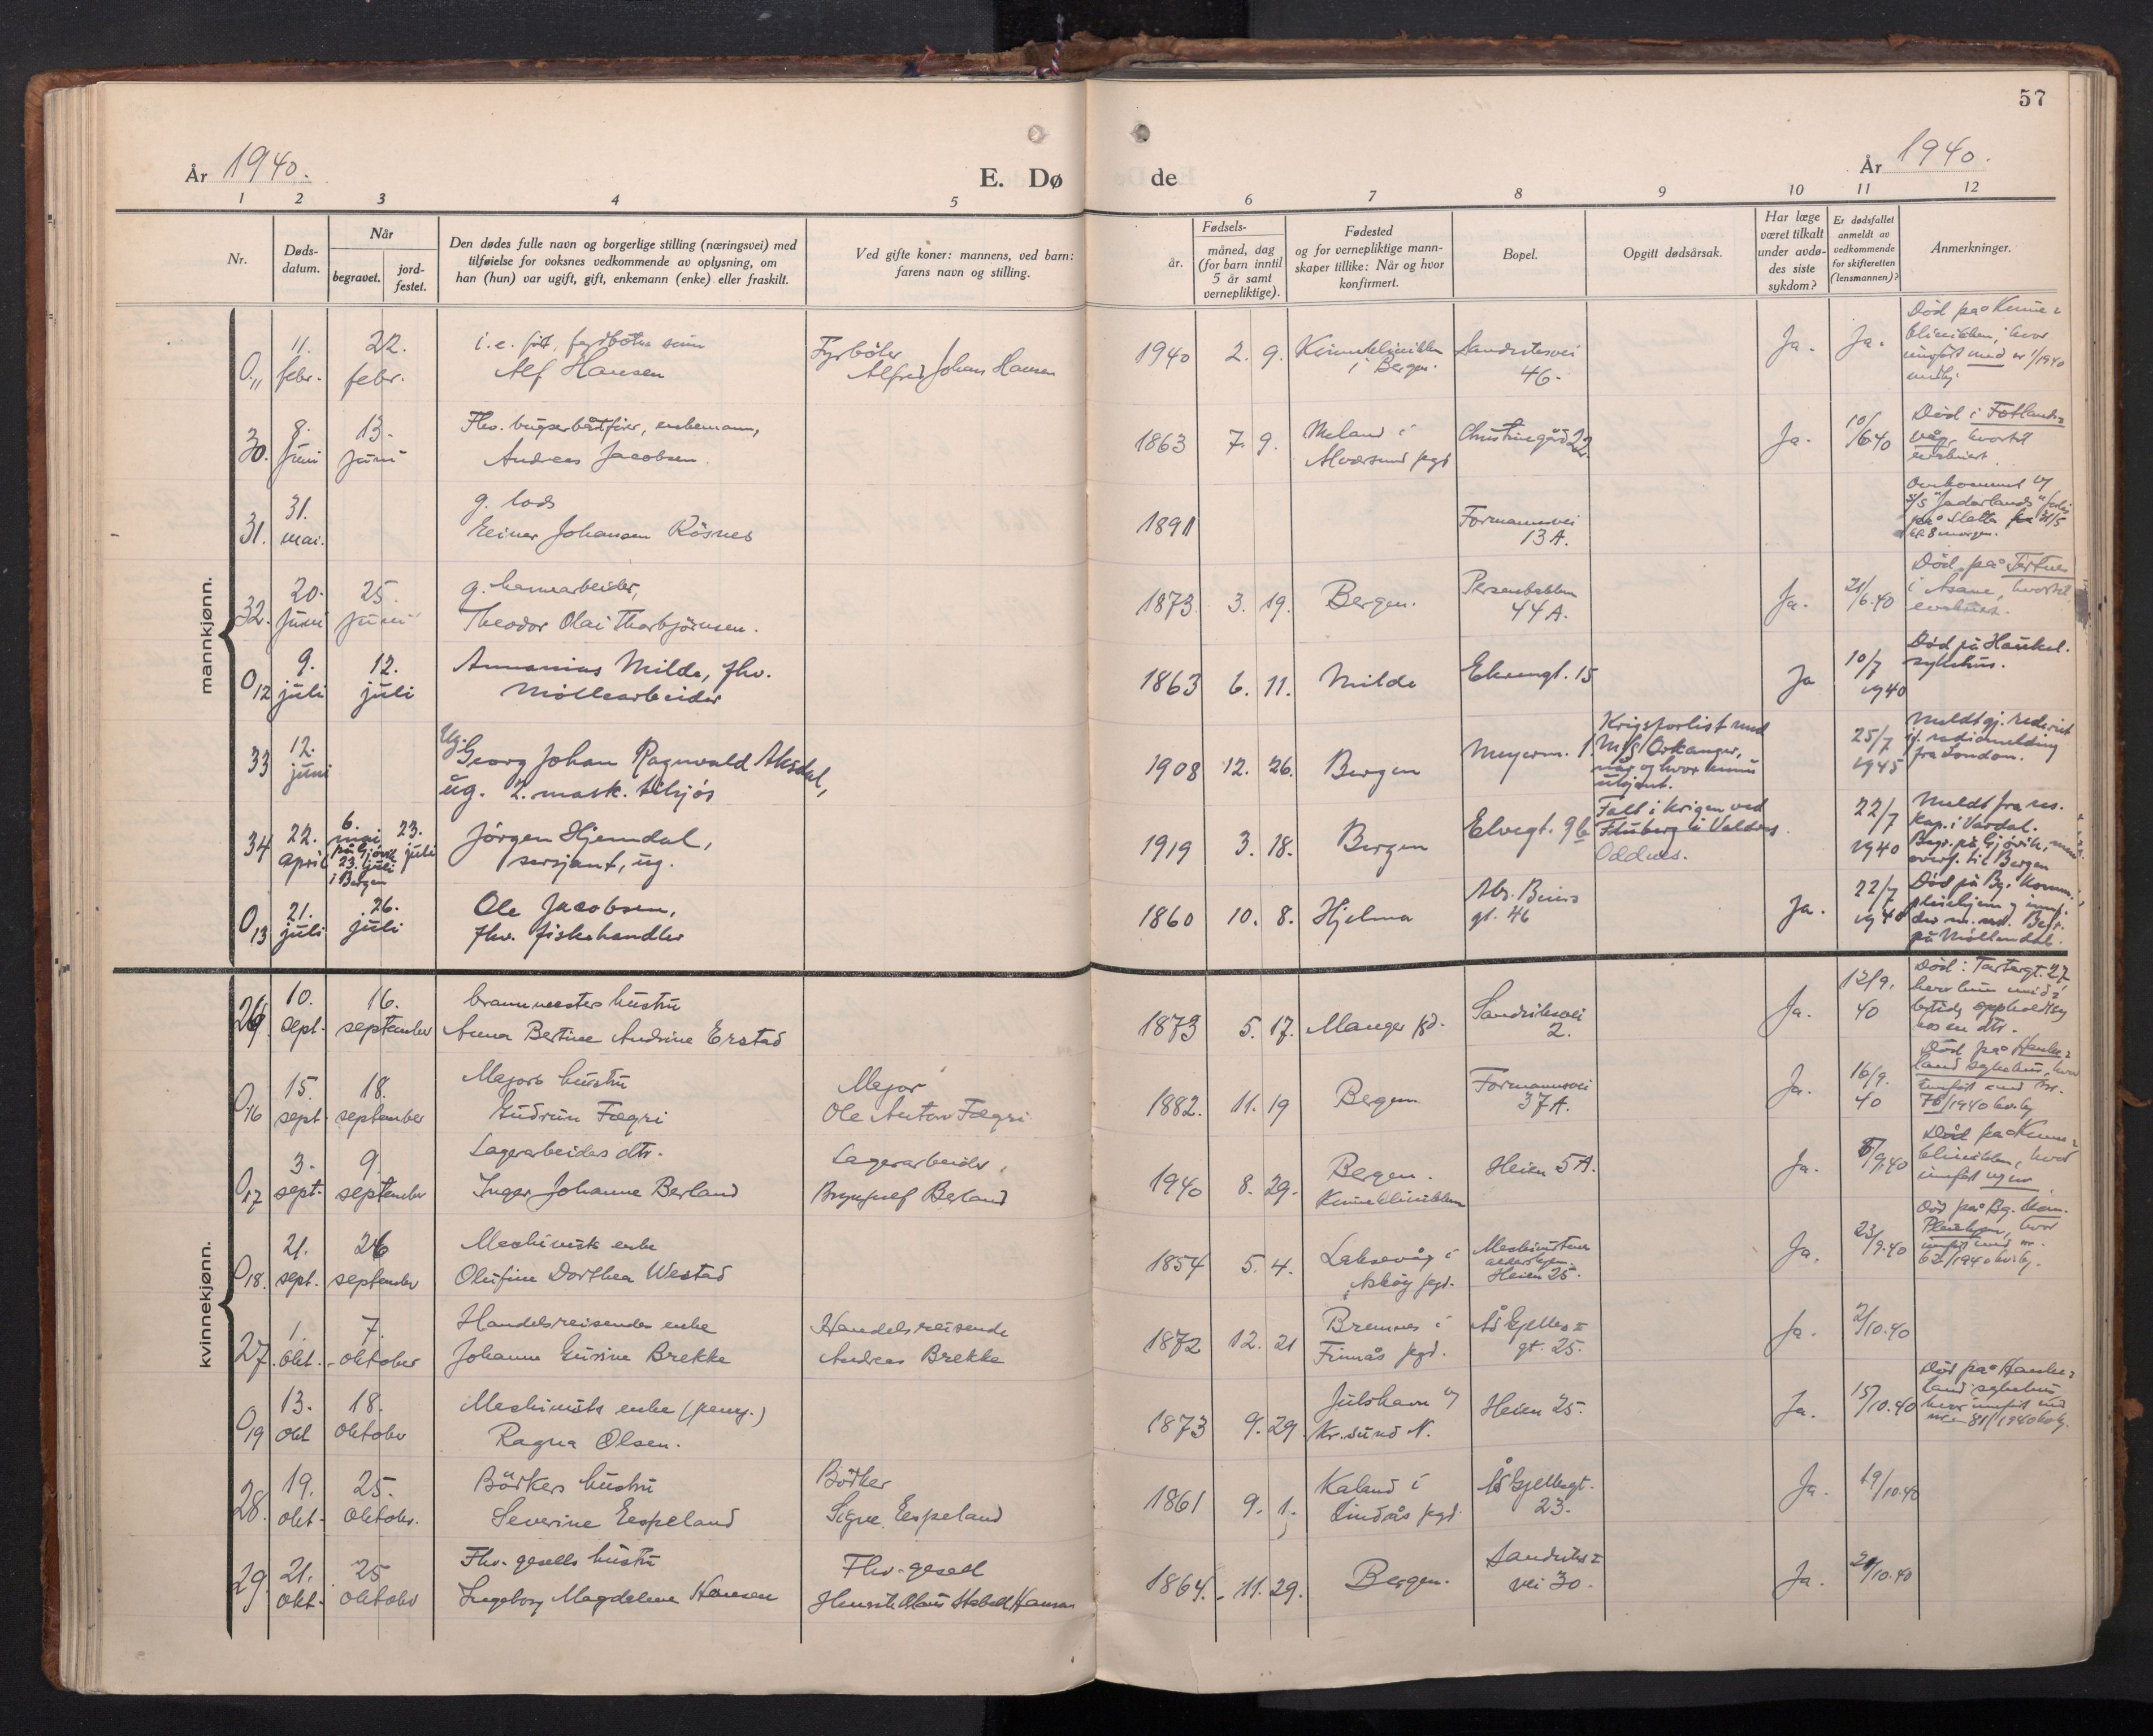 57
År 1940.
E. Døde
År 1940.
1 2 3 4 5 6 7 8 9 10 11 12
Nr.
Døds-
datum.
Når
begravet.
jord-
festet.
Den dødes fulle navn og borgerlige stilling (næringsvei) med
tilføielse for voksnes vedkommende av oplysning, om
han (hun) var ugift, gift, enkemann (enke) eller fraskilt.
Ved gifte koner: mannens, ved barn:
farens navn og stilling.
Fødsels-
år.
måned, dag
(for barn inntil
5 år samt
vernepliktige).
Fødested
og for vernepliktige mann-
skaper tillike: Når og hvor
konfirmert.
Bopel.
Opgitt dødsårsak.
Har læge
været tilkalt
under avdø-
des siste
sykdom?
Er dødsfallet
anmeldt av
vedkommende
for skifteretten
(lensmannen)?
Anmerkninger.
mannkjønn.
0/11 11. febr. 22. febr.
Alf Hansen
Fyrbøter
Alfred Johan Hansen
1940 2. 9. Kvinneklinikken
i Bergen.
Sandviksvei
46.
Ja. Ja.
Død på Kvinne=
klinikken, hvor
innført med nr 1/1940
30. 8. juni 13. juni
Fhv. bugserbåtfører, enkemann,
Andreas Jacobsen.
1863 7. 9. Meland i
Alversund pgd
Christinegård 22.
Ja. 10/6 40
Død i Fotlands=
våg, hvortil
evakuert.
31. 31. mai.
g. lods
Einar Johansen Rösnes
1891
Formannsvei
13 A.
Omkommet v/
S/S "Jadarland"s forlis
på Sletta 31/5
kl. 8 morgen.
32. 20. juni 25. juni
g. havnearbeider,
Theodor Olai Thorbjörnsen.
1873 3. 19. Bergen.
Persenbakken
44 A.
Ja. 21/6.40
Død på Tertnes
i Åsane, hvortil
evakuert.
0/12 9. juli 12. juli
Annanias Milde, fhv.
møllearbeider
1863 6. 11. Milde
Ekrengt. 15
Ja 10/7 1940
Død på Haukel.
sykehus.
33 12. juni
Ug.
Georg Johan Ragnvald Aksdal,
ug. 2. mask. tilsjøs
1908 12. 26. Bergen
Meyerm. 1
Krigsforlist med
M/S Orkanger,
når og hvor ennu
ukjent.
25/7 1945
Meldt gj. rederiet
if. radiomelding
fra London.
34 22. april
6. mai
på Gjøvik
23. juli
i Bergen
23. juli
Jörgen Hjemdal,
sersjant, ug.
1919 3. 18. Bergen
Elvegt. 9b
Falt i krigen ved
Fluberg i Valdres.
Oddnes.
22/7 1940
Meldt fra res.
kap. i Vardal.
Begr. på Gjøvik, men
overf. til Bergen
0/13 21. juli 26. juli
Ole Jacobsen,
fhv. fiskehandler
1860 10. 8. Hjelma
gt. 46
Ja. 22/7 1940
Død på Bg. Komm.
pleiehjem og innf.
der m. nr. Begr.
på Møllendal.
kvinnekjønn.
26. 10. sept. 16. september
brannmesters hustru
Anna Bertine Andrine Erstad
1873 5. 17. Manger pgd.
Sandviksvei
2.
Ja. 12/9. 40
Død: Tartargt. 27,
hvor hun mid=
lertidig oppholdt seg
hos en dtr.
0/16 15. sept. 18. september
Majors hustru
Gudrun Fægri
Major
Ole Anton Fægri
1882. 11. 19 Bergen
Formannsvei
37 A.
Ja. 16/9. 40
Død på Hauke=
land sykehus, hvor
innført med nr.
76/1940 kv.kj
0/17 3. sept. 9. september
Lagerarbeiders dtr.
Inger Johanne Berland
Lagerarbeider,
Brynjulf Berland
1940 8. 29. Bergen.
Kvinneklinikken
Heien 5 A.
Ja. 5/9.40
Død på Kvinne=
klinikken, hvor
innført
0/18. 21. sept. 26 september
Maskinists enke
Olufine Dorthea Westad
1854 5. 4. Laksevåg i
Askøy pgd.
Maskinistenes
aldershjem.
Heien 25.
Ja. 23/9.40
Død på Bg. Kom.
Pleiehjem, hvor
innført med nr.
62/1940 kv.kj.
27. 1. okt. 7. oktober
Handelsreisendes enke
Johanne Gurine Brekke
Handelsreisende
Andreas Brekke
1872 12. 21 Bremnes i
Finnås pgd.
Ås Gjelles=
gt. 25.
Ja. 2/10.40
0/19 13. okt 18. oktober
Maskinists enke (pensj.)
Ragna Olsen.
1873 9. 29. Julshavn v/
Kr.sund N.
Heien 25.
Ja. 15/10.40
Død på Hauke=
land sykehus
hvor innført med
nr. 81/1940 kv.kj.
28. 19. okt. 25. oktober.
Bödkers hustru
Severine Espeland
Bödker
Sigve Espeland
1861 9. 1. Kaland i
Lindås pgd.
23.
Ja. 19/10.40
29. 21. okt. 25 oktober
Fhv. gesells hustru
Ingeborg Magdalene Hansen
Fhv. gesell
Henrik Olaus Stabell Hansen
1864. 11. 29. Bergen.
Sandviks=
vei 30.
Ja. 21/10.40